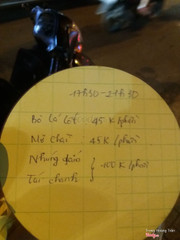 17h30 - 21h30
Bò lá lốt : 45 K/phần
Mỡ chài : 45K/phần
Nhúng dấm } 100 K/phần
Tái chanh